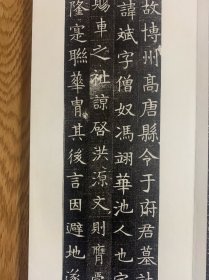 故博州高唐縣令于府君墓誌
諱斌字僧奴馮翊華池人也
賜車之祉諒啓洪源文則膺
隆寔聯華胄其後言因避地遂